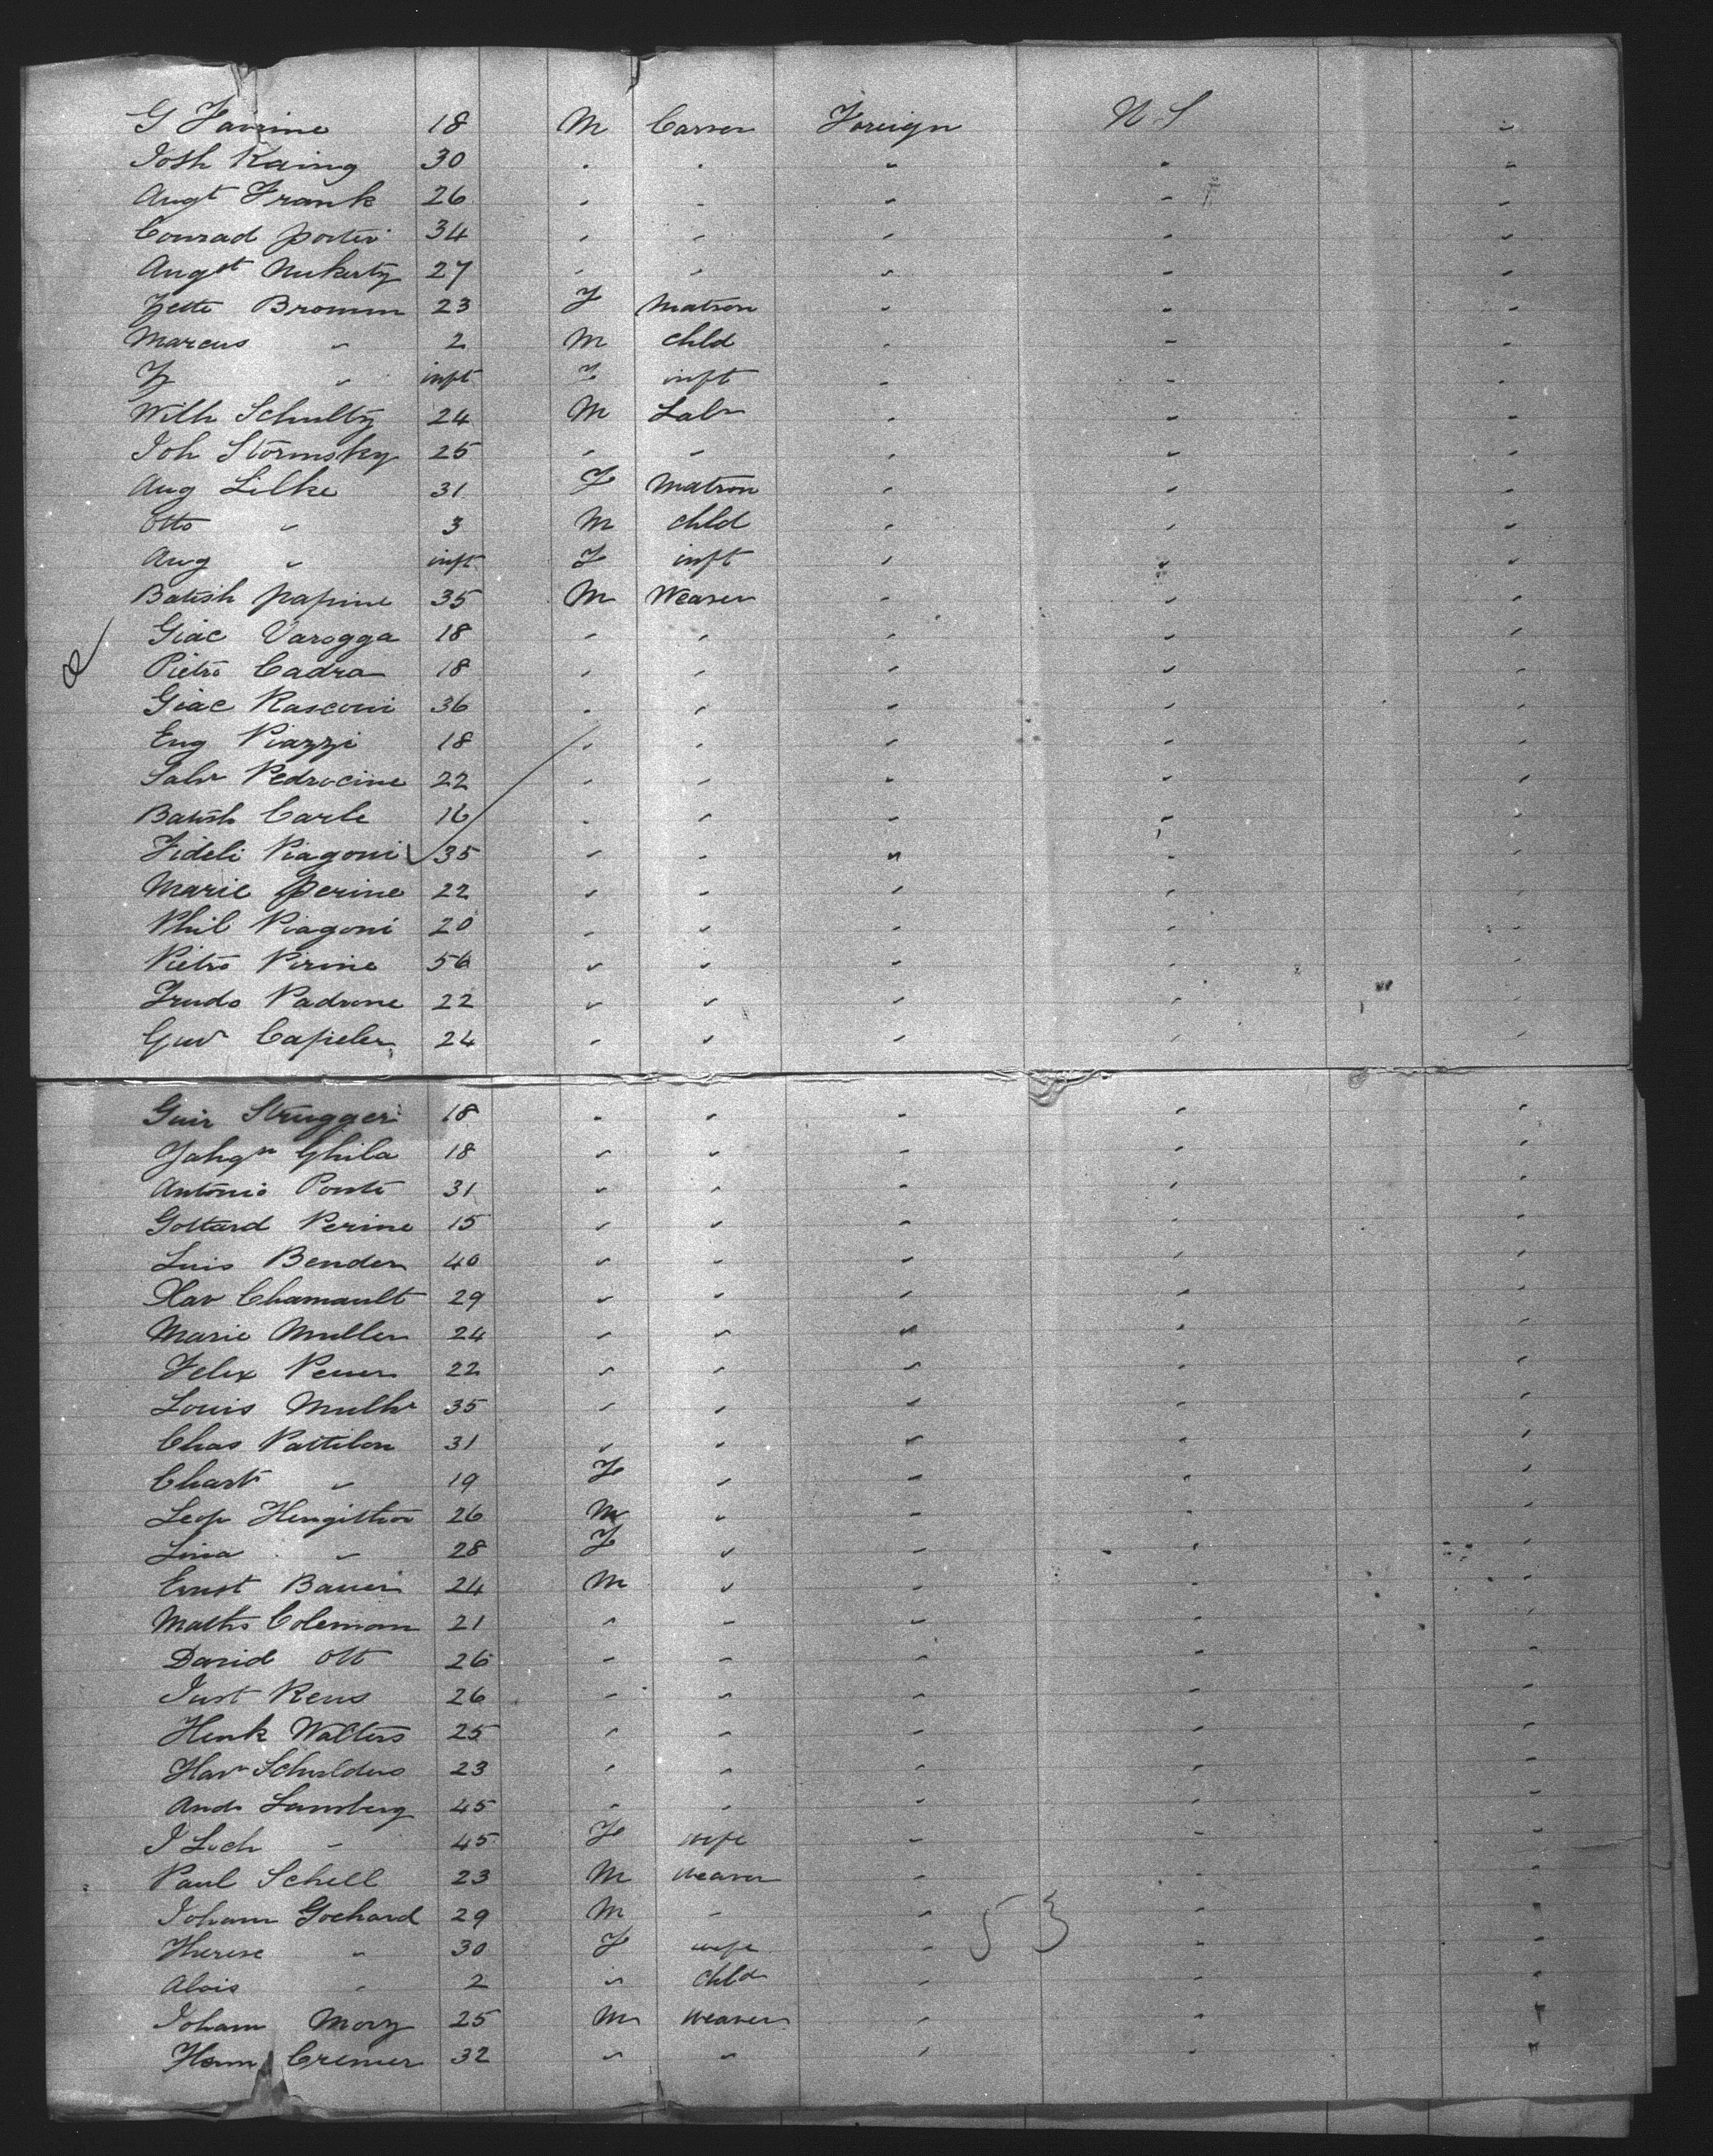 G Favrine 18 M Carver Foreign U S "
Josh Kaing 30 " " " " "
Augt Frank 26 " " " " "
Conrad porter 34 " " " " "
Augst Nukerty 27 " " " " "
Zette Bromm 23 F Matron " " "
Marcus " 2 M chld " " "
Z " inft F inft " " "
Wilh Schultz 24 M Labr " " "
Joh Stormsky 25 " " " " "
Aug Lilke 31 F Matron " " "
Otto " 3 M chld " " "
Aug " inft F inft " " "
Batish papine 35 M Weaver " " "
Giac Varogga 18 " " " " "
Pietro Cadra 18 " " " " "
Giac Rasconi 36 " " " " "
Eug Piazzi 18 " " " " "
Salvr Pedrocine 22 " " " " "
Batish Carle 16 " " " " "
Fideli Piagoni 35 " " " " "
Marie perine 22 " " " " "
Phil Piagoni 20 " " " " "
Pietro Pirine 56 " " " " "
Frudo Padrone 22 " " " " "
Capieler 24 " " " " "
Guir Strugger 18 " " " " "
Ghila 18 " " " " "
Antonio Ponti 31 " " " " "
Gottard Perine 15 " " " " "
Luis Bender 40 " " " " "
Xav Chamault 29 " " " " "
Marie Muller 24 " " " " "
Felix 22 " " " " "
Louis Mullr 35 " " " " "
Chas Pattilon 31 " " " " "
Chart " 19 F " " " "
Leop 26 M " " " "
Lina " 28 F " " " "
Ernst Bauer 24 M " " " "
Maths Coleman 21 " " " " "
David Ott 26 " " " " "
Just Rens 26 " " " " "
Henk Walters 25 " " " " "
Schulders 23 " " " " "
Andr Lamberg 45 " " " " "
J Lich " 45 F wife " " "
Paul Schell 23 M weaver " " "
Joham Gochard 29 M " " " "
53
Therese " 30 F wife " " "
Alois " 2 " chld " " "
Joham Mory 25 M weaver " " "
Hem Cremer 32 " " " " "